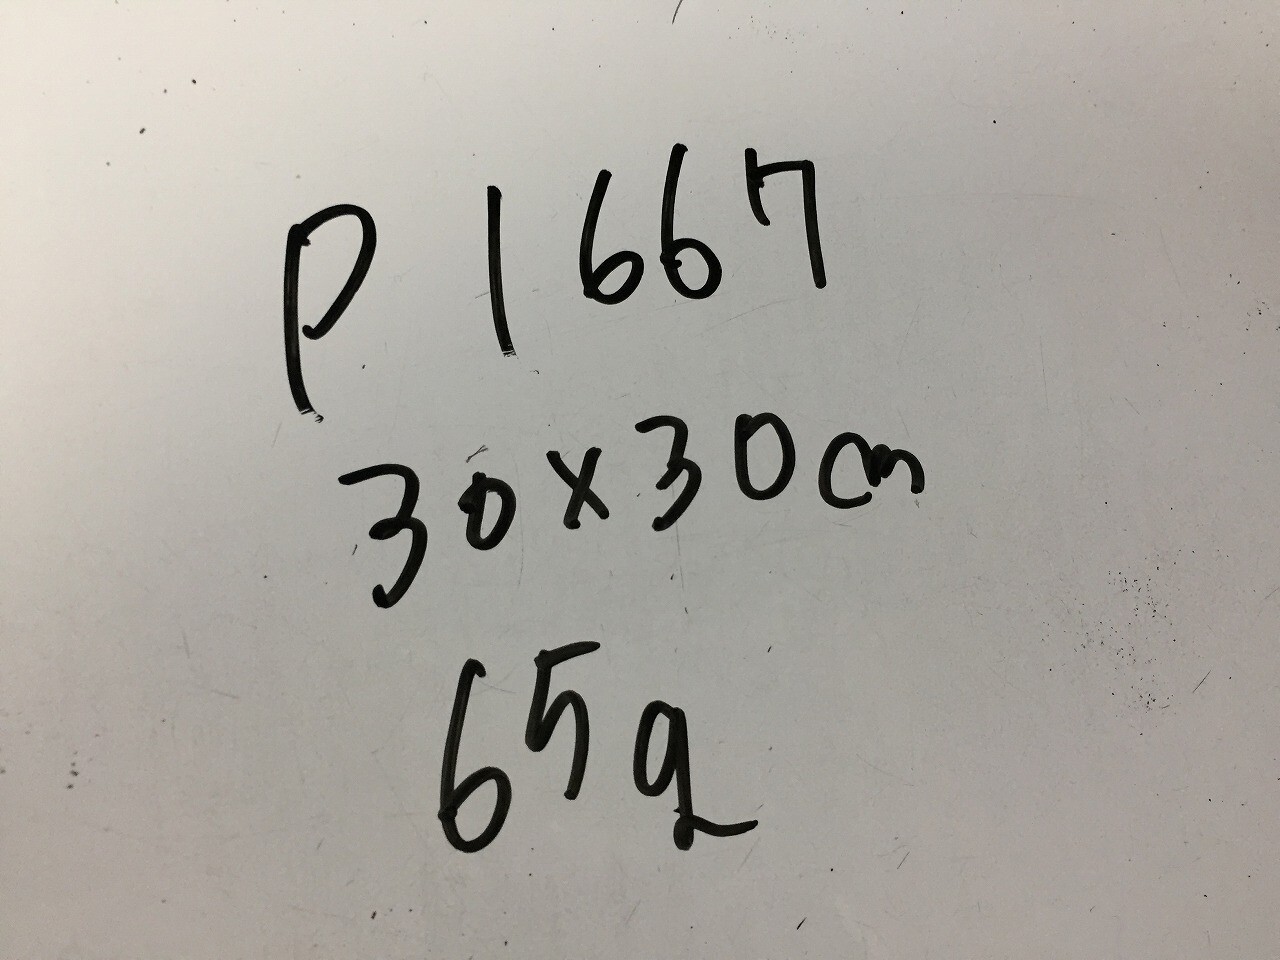 P 1667
30x30cm
65g